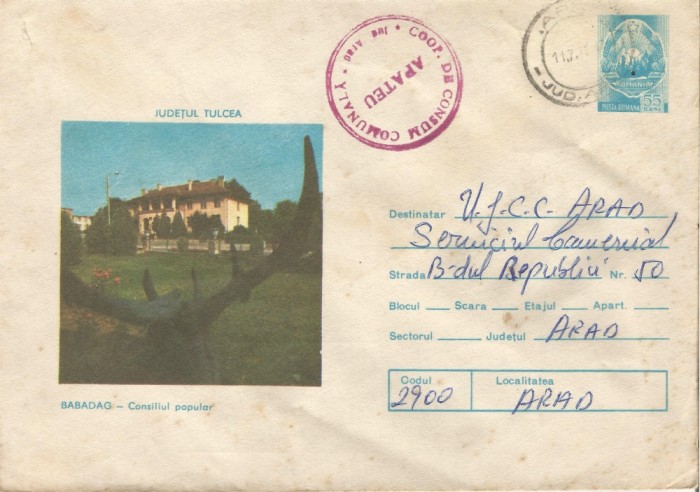 COOP. DE CONSUM COMUNALY
Jud. Arad
APATEU
11.7.
JUD. A
ROMANIA
POSTA ROMANA 55
JUDEȚUL TULCEA
BABADAG — Consiliul popular
Destinatar U.J.C.C. ARAD
Serviciul Comercial
Strada B-dul Republicii Nr. 50
Blocul Scara Etajul Apart.
Sectorul Județul ARAD
Codul Localitatea
2900 ARAD